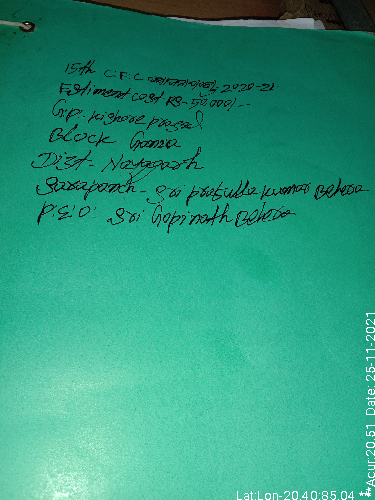 15th C.F.C 2020-21
Estiment cost Rs-50,000/-
G.p. kishore prasad
Block Gania
Dist- Nayagarh
Sarapanch - Sri prafulla kumar Behera
P.E.O. Sri Gopinath Behera
Lat:Lon-20.40:85.04 **Acur:20.51 Date: 25-11-2021